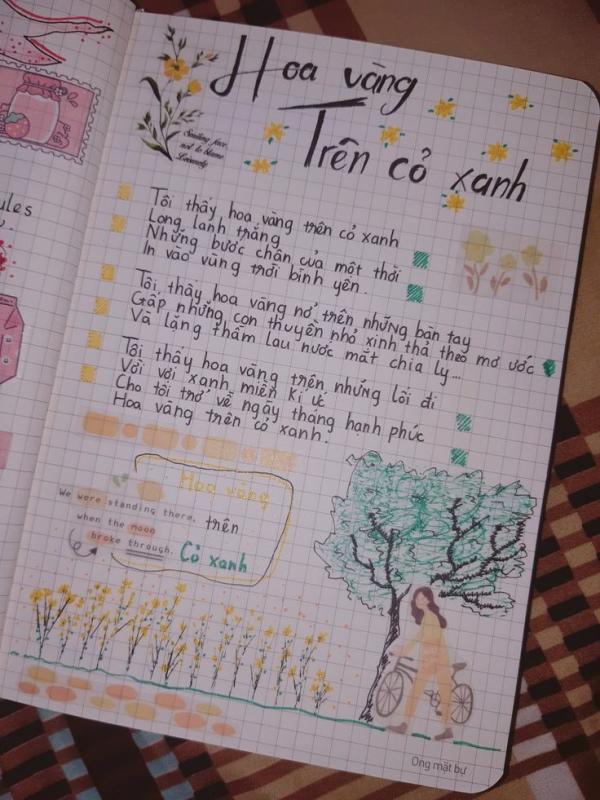 ules
Hoa vàng
Trên cỏ xanh
Smiling face
not to blame
Leisurely
Tôi thấy hoa vàng trên cỏ xanh
Long lanh trắng
Những bước chân của một thời
In vào vùng trời bình yên.
Tôi thấy hoa vàng nở trên những bàn tay
Gấp những con thuyền nhỏ xinh thả theo mơ ước
Và lặng thầm lau nước mắt chia ly...
Tôi thấy hoa vàng trên những lối đi
Vời vợi xanh miền kí ức
Cho tôi trở về ngày tháng hạnh phúc
Hoa vàng trên cỏ xanh.
Hoa vàng
we were standing there,
trên
when the moon
broke through.
Cỏ xanh
Ong mật bự